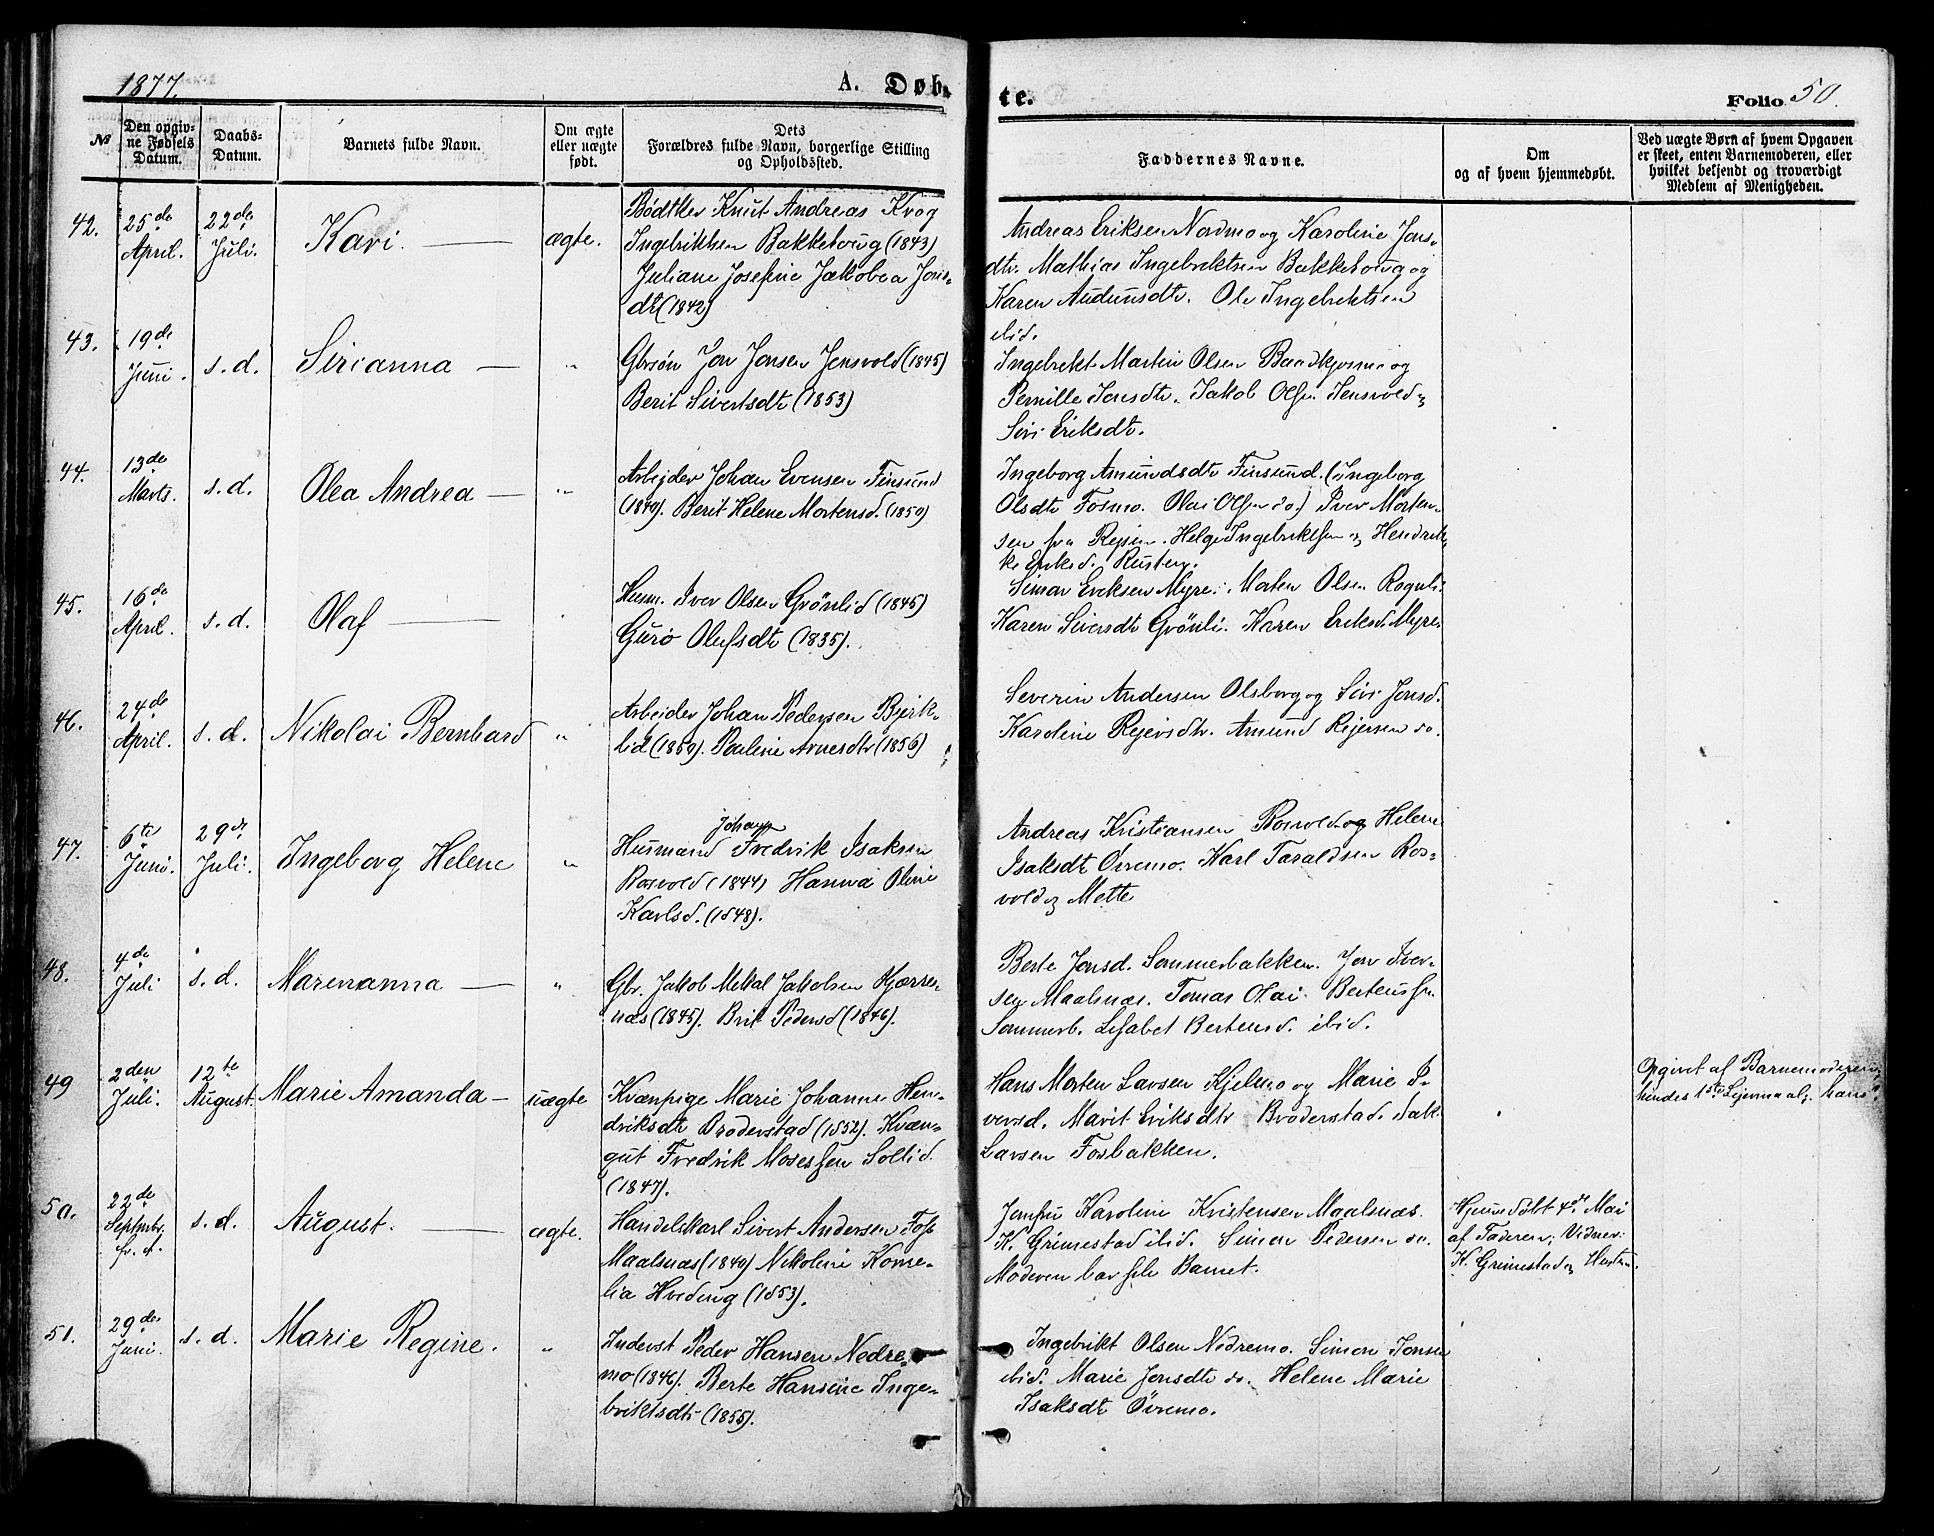 1877.
A. Døb-
te.
Folio 50.
№
Den opgiv-
ne Fødsels
Datum.
Daabs-
Datum.
Barnets fulde Navn.
Om ægte
eller uægte
født.
Dets
Forældres fulde Navn, borgerlige Stilling
og Opholdssted.
Faddernes Navne.
Om
og af hvem hjemmedøbt.
Ved uægte Børn af hvem Opgaven
er skeet, enten Barnemoderen, eller
hvilket bekjendt og troværdigt
Medlem af Menigheden.
42.
25de
April.
22de
Juli.
Kari.
ægte.
Bödtker Knut Andreas Krog
Ingebriktsen Bakkehoug (1843)
Juliane Josefine Jakobea Jons-
dt (1842)
Andreas Eriksen Nordmo og Karoline Jons-
dtr. Mathias Ingebriktsen Bakkehoug og
Karen Audunsdtr. Ole Ingebriktsen
ibid.
43.
19de
Juni.
s. d.
Sirianna
"
Gbrsøn Jon Jonsen Jensvold (1845)
Berit Sivertsdtr (1853)
Ingebrikt Martin Olsen og
Pernille Jonsdtr. Jakob Olsen Jensvold og
Siri Eriksdtr.
44.
13de
Marts.
s. d.
Olea Andrea
"
Arbejder Johan Evensen Finsund
(1840). Berit Helene Mortensd. (1850)
Ingeborg Amundsdtr Finsund. (Ingeborg
Olsdtr Fosmo. Olai Olsen do.) Iver Morten-
sen fra Rejsen. Helge Ingebriktsen og Hendrik-
ke Eriksd. Rusten.
45.
16de
April.
s. d.
Olaf
"
Husm. Iver Olsen Grönlid (1845)
Guro Olufsdtr (1835).
Simon Eriksen Myre. Morten Olsen Rognli.
Karen Siversdtr Grönli. Karen Eriksd. Myre.
46.
24de
April.
s. d.
Nikolai Bernhard
"
Arbejder Johan Pedersen Bjerk-
lid (1850). Pauline Arnesdtr (1856)
Severin Andersen Olsborg og Siri Jonsd.
Karoline Rejersdtr. Amund Rejersen do.
47.
6te
Juni.
29de
Juli.
Ingeborg Helene
"
Johan
Husmand Fredrik Isaksen
Rosvold (1844) Hanna Oline
Karlsd. (1848).
Andreas Kristiansen Rosvold og Helene
Isaksdt Øvremo. Karl Taraldsen Ros-
vold og Mette
48.
4de
Juli
s. d.
Marenanna
"
Gbr. Jakob Mikal Jakobsen Kjærre-
næs (1845). Brit Pedersd (1846).
Berte Jonsd. Sommerbakken. Jon Iver-
sen Maalsnæs. Tomas Olai Berteussen
Sommerb. Lisabet Berteusd. ibid.
49
2den
Juli.
12te
August.
Marie Amanda
uægte
Kvænpige Marie Johanne Hen-
driksdt Broderstad (1852). Kvæn-
gut Fredrik Mosessen Sollid.
(1847).
Hans Morten Larsen Kjelmo og Marie I-
versd. Marit Eriksdtr Broderstad. Isak
Larsen Fosbakken.
Opgivet af Barnemoderen;
hendes 1ste Lejermaal; hans
50.
22de
Septmbr.
f. A.
s. d.
August.
ægte.
Handelskarl Sivert Andersen Foss
Maalsnæs (1840) Nikoline Korne-
lia Hveding (1853).
Jomfru Karoline Kristensen Maalsnæs.
K. Grimestad ibid. Simon Pedersen do.
Moderen bar selv Barnet.
Hjemmedøbt 4de Mai
af Faderen; Vidner:
K. Grimestad og Hustru.
51.
29de
Juni.
s. d.
Marie Regine.
"
Inderst Peder Hansen Nedre-
mo (1846). Berte Hansine Inge-
briktsdtr (1855).
Ingebrikt Olsen Nedremo. Simon Jonsen
ibid. Marie Jonsdtr do. Helene Marie
Isaksdt Øvremo.